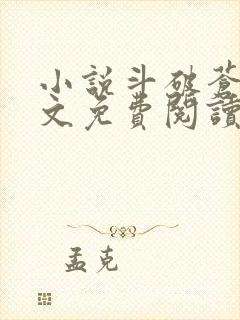 小説斗破蒼
文免費閱讀
孟克